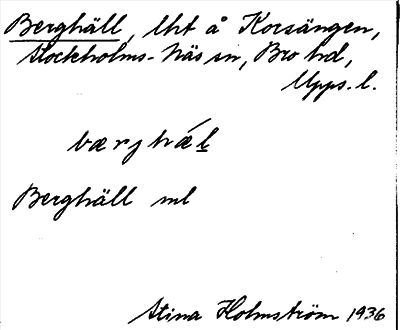 Berghäll, lht å Korsängen,
Stockholms-Näs sn, Bro hd,
Upps. l.
bærjhǽl
Berghäll ml
Stina Holmström 1936